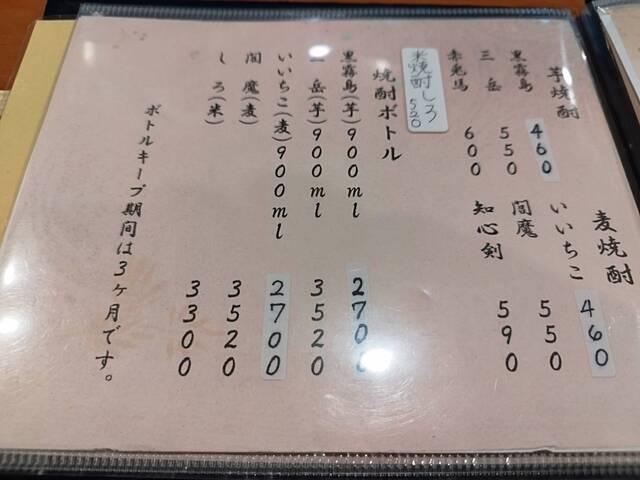 芋焼酎
黒霧島 460
三岳 550
赤兎馬 600
米焼酎しろ 520
麦焼酎
いいちこ 460
閻魔 550
知心剣 590
焼酎ボトル
黒霧島(芋)900ml 2700
三岳(芋)900ml 3520
いいちこ(麦)900ml 2700
閻魔(麦) 3520
しろ(米) 3300
ボトルキープ期間は3ヶ月です。